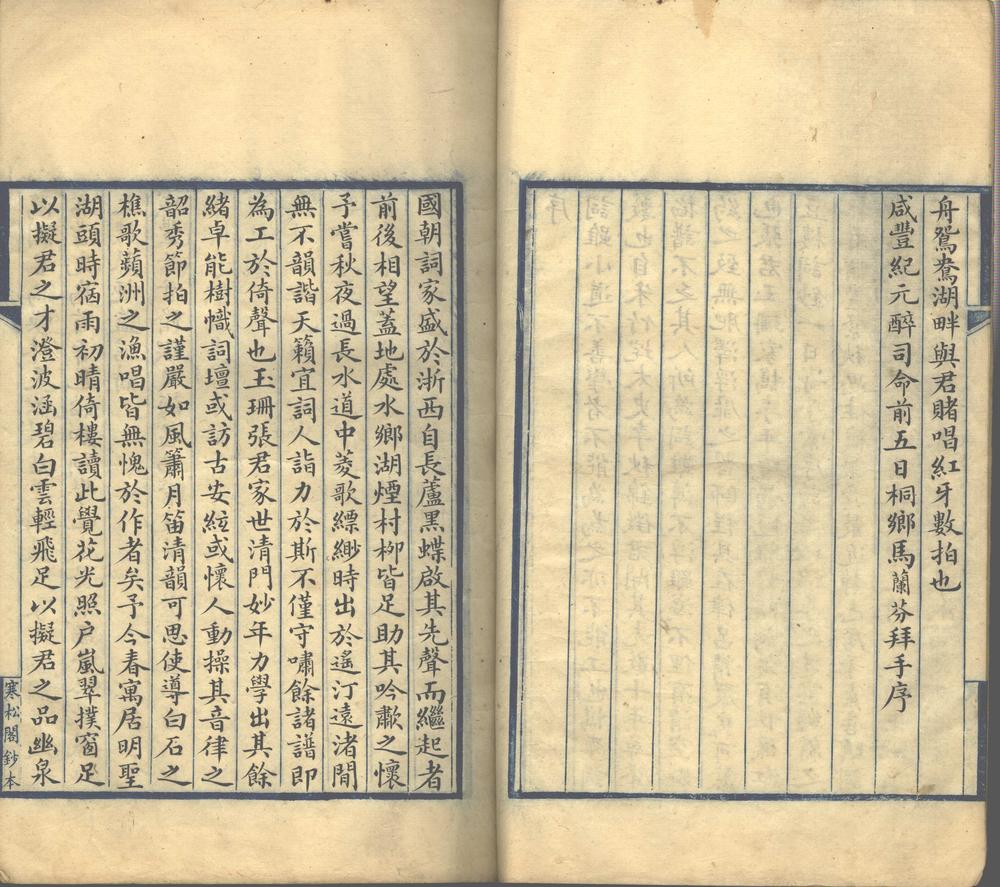 舟鴛鴦湖畔與君賭唱紅牙數拍也
咸豐紀元醉司命前五日桐鄉馬蘭芬拜手序
國朝詞家盛於浙西自長蘆黑蝶啟其先聲而繼起者
前後相望蓋地處水鄉湖煙村柳皆足助其吟歗之懷
予嘗秋夜過長水道中菱歌縹緲時出於遙汀遠渚閒
無不韻諧天籟宜詞人詣力於斯不僅守嘯餘諸譜即
為工於倚聲也玉珊張君家世清門妙年力學出其餘
緒卓能樹幟詞壇或訪古安絃或懷人動操其音律之
韶秀節拍之謹嚴如風簫月笛清韻可思使導白石之
樵歌蘋洲之漁唱皆無愧於作者矣予今春寓居明聖
湖頭時宿雨初晴倚樓讀此覺花光照户嵐翠撲窗足
以擬君之才澄波涵碧白雲輕飛足以擬君之品幽泉
寒松閣鈔本